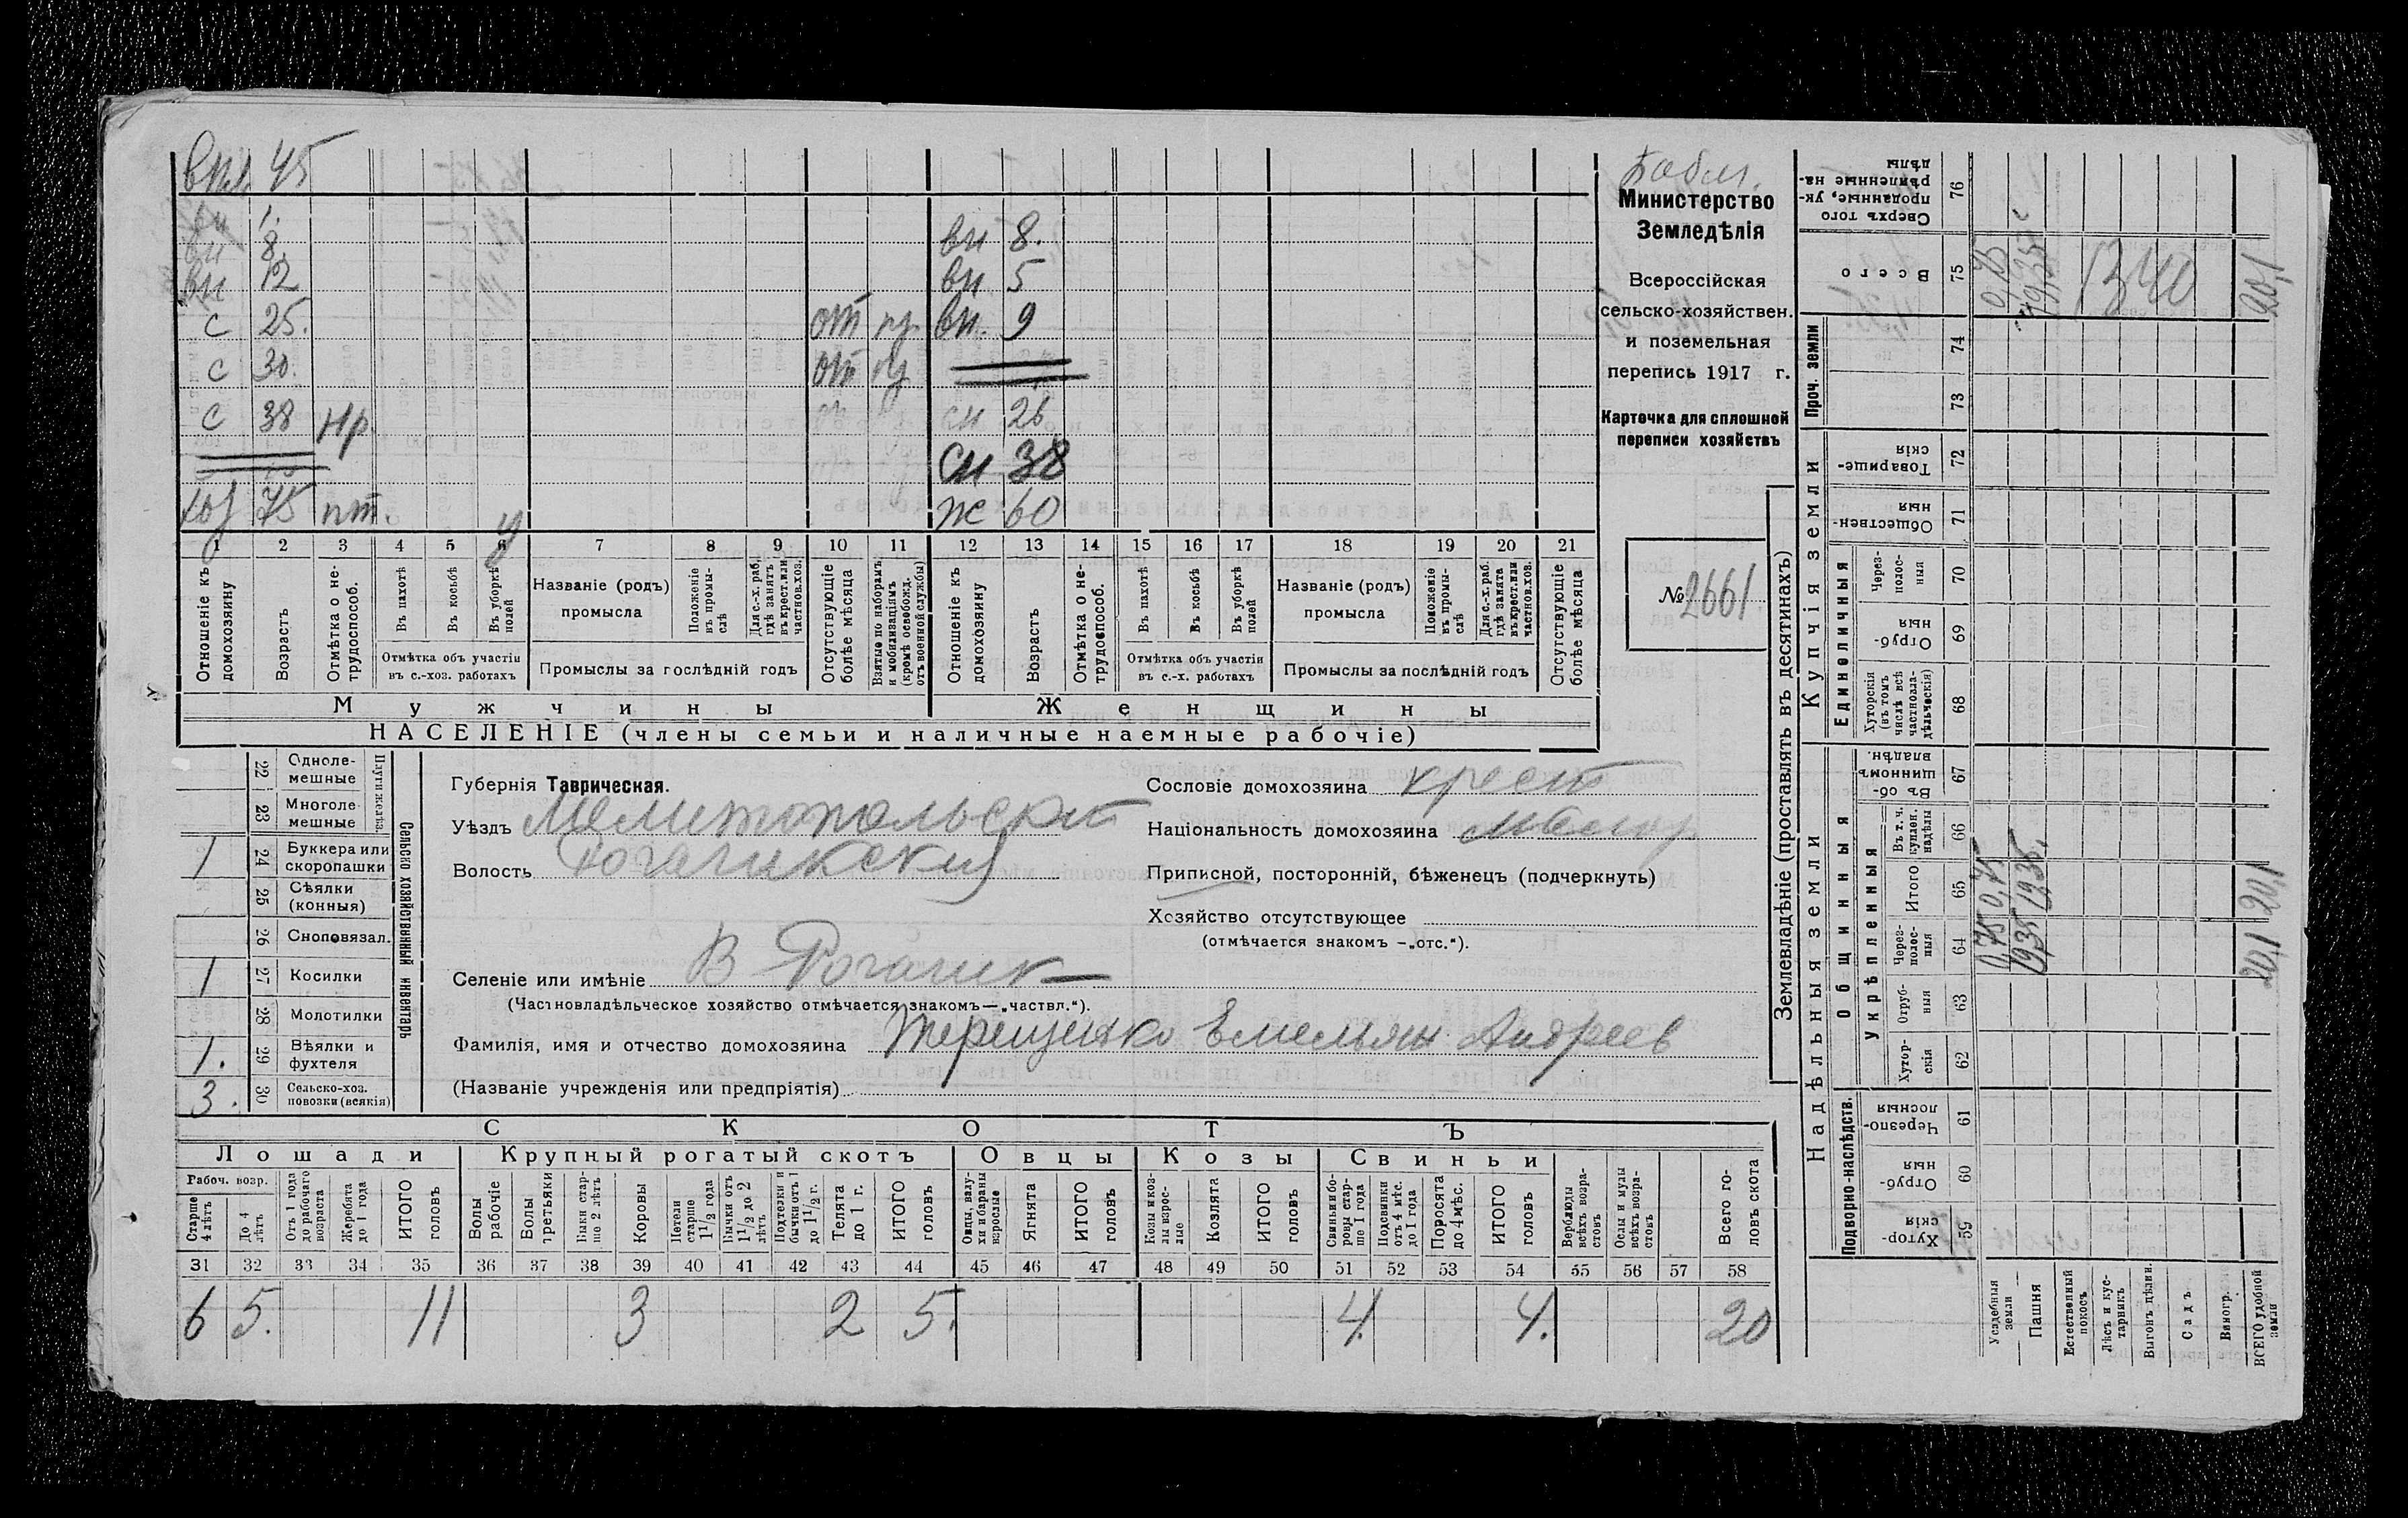 впл. 45
вн 1.
вн 8. вн 8.
вн 12 вн 5
с 25. от вн. 9
с 30. от
с 38 нр. сн 26
сн 38
хоз 75 пт. у ж 60
1 2 3 4 5 6 7 8 9 10 11 12 13 14 15 16 17 18 19 20 21
Отношеніе къ домохозяину
Возрастъ
Отмѣтка о не-трудоспособ.
Въ пахотѣ
Въ косьбѣ
Въ уборкѣ полей
Отмѣтка объ участіи въ с.-хоз. работахъ
Названіе (родъ) промысла
Положеніе въ промы-слѣ
Для с.-х. раб. гдѣ занятъ въ крест. или частнов. хоз.
Промыслы за послѣдній годъ
Отсутствующіе болѣе мѣсяца
Взятые по наборамъ и мобилизаціямъ (кромѣ освобожд. отъ военной службы)
Отношеніе къ домохозяину
Возрастъ
Отмѣтка о не-трудоспособ.
Въ пахотѣ
Въ косьбѣ
Въ уборкѣ полей
Отмѣтка объ участіи въ с.-х. работахъ
Названіе (родъ) промысла
Положеніе въ промы-слѣ
Для с.-х. раб. гдѣ занята въ крест. или частнов. хоз.
Промыслы за послѣдній годъ
Отсутствующіе болѣе мѣсяца
Мужчины Женщины
НАСЕЛЕНІЕ (члены семьи и наличные наемные рабочіе)
Министерство
Земледѣлія
Всероссійская
сельско-хозяйствен.
и поземельная
перепись 1917 г.
Карточка для сплошной
переписи хозяйствъ
№ 2661
22 Одноле-мешные
23 Многоле-мешные
Плуги желѣз.
1 24 Буккера или скоропашки
25 Сѣялки (конныя)
26 Сноповязал.
1 27 Косилки
28 Молотилки
1. 29 Вѣялки и фухтеля
3. 30 Сельско-хоз. повозки (всякія)
Сельско хозяйственный инвентарь
Губернія Таврическая.
Уѣздъ Мелитопольскій
Волость Рогачикский
Селеніе или имѣніе В Рогачик
(Частновладѣльческое хозяйство отмѣчается знакомъ—„частвл.“).
Фамилія, имя и отчество домохозяина Терещенко Емельян Андреев
(Названіе учрежденія или предпріятія)
Сословіе домохозяина крест
Національность домохозяина малор
Приписной, посторонній, бѣженецъ (подчеркнуть)
Хозяйство отсутствующее
(отмѣчается знакомъ —„отс.“).
СКОТЪ
Лошади Крупный рогатый скотъ Овцы Козы Свиньи
Рабоч. возр.
Старше 4 лѣтъ
До 4 лѣтъ
Отъ 1 года до рабочаго возраста
Жеребята до 1 года
ИТОГО головъ
Волы рабочіе
Волы третьяки
Быки стар-ше 2 лѣтъ
Коровы
Нетели старше 1 1/2 года
Бычки отъ 1 1/2 до 2 лѣтъ
Подтелки и бычки отъ 1 до 1 1/2 г.
Телята до 1 г.
ИТОГО головъ
Овцы, валу-хи и бараны взрослые
Ягнята
ИТОГО головъ
Козы и коз-лы взрос-лые
Козлята
ИТОГО головъ
Свиньи и бо-ровы стар-ше 1 года
Подсвинки отъ 4 мѣс. до 1 года
Поросята до 4 мѣс.
ИТОГО головъ
Верблюды всѣхъ возра-стовъ
Ослы и мулы всѣхъ возра-стовъ
Всего го-ловъ скота
31 32 33 34 35 36 37 38 39 40 41 42 43 44 45 46 47 48 49 50 51 52 53 54 55 56 57 58
6 5. 11 3 2 5. 4. 4. 20
Землевладѣніе (проставлять въ десятинахъ)
Сверхъ того проданные, ук-рѣпленные на-дѣлы 76
Всего 75
Проч. земли 74 73
Купчія земли
Товарище-скія 72
Обществен-ныя 71
Единоличныя
Через-полос-ныя 70
Отруб-ныя 69
Хуторскія (въ томъ числѣ всѣ частновла-дѣльческія) 68
Надѣльныя земли
Общинныя
Въ об-щинномъ владѣн. 67
Укрѣпленныя
Въ т. ч. куплен. надѣлы 66
Итого 65
Через-полос-ныя 64
Отруб-ныя 63
Хутор-скія 62
Подворно-наслѣдств.
Черезпо-лосныя 61
Отруб-ныя 60
Хутор-скія 59
Усадебныя земли 0,75 0,75 0,75
Пашня 19,35 19,35. 19,35
Естественный покосъ
Лѣсъ и кус-тарникъ
Выгонъ цѣлин.
Садъ
Виногр.
ВСЕГО удобной земли 20,1 20,1 20,1
1340